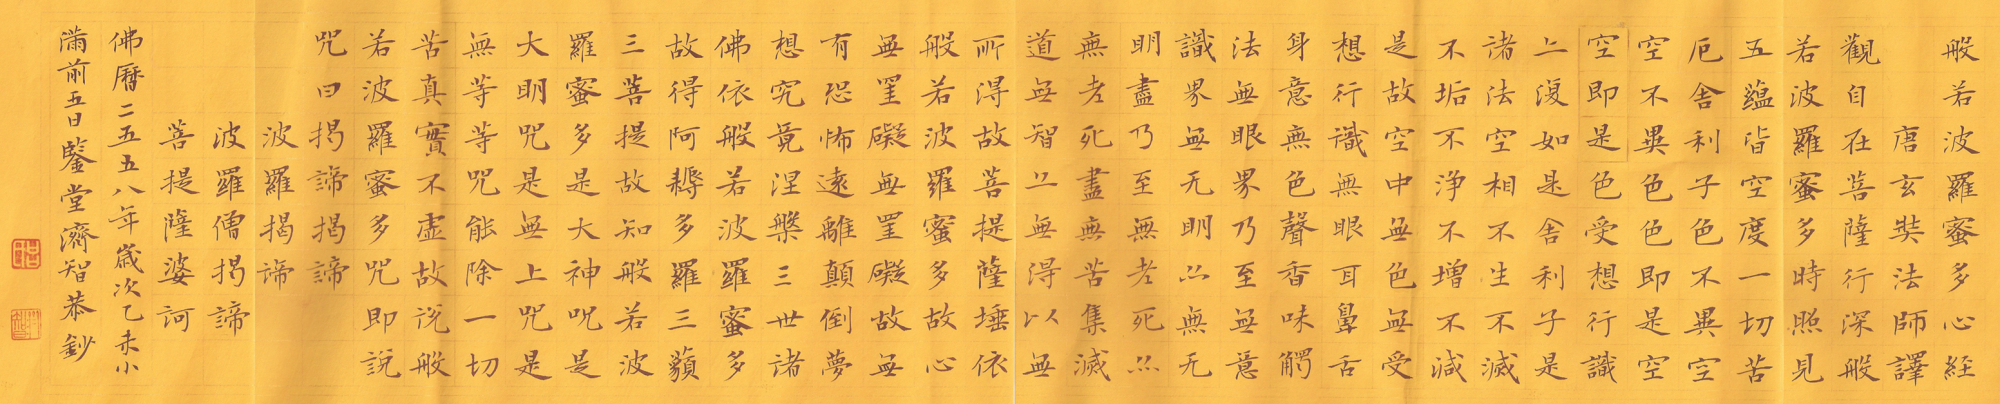 般若波羅蜜多心經
唐玄奘法師譯
觀自在菩薩行深般
若波羅蜜多時照見
五蘊皆空度一切苦
厄舍利子色不異空
空不異色色即是空
空即是色受想行識
亦復如是舍利子是
諸法空相不生不滅
不垢不淨不增不減
是故空中無色無受
想行識無眼耳鼻舌
身意無色聲香味觸
法無眼界乃至無意
識界無无明亦無无
明盡乃至無老死亦
無老死盡無苦集滅
道無智亦無得以無
所得故菩提薩埵依
般若波羅蜜多故心
無罣礙無罣礙故無
有恐怖遠離顛倒夢
想究竟涅槃三世諸
佛依般若波羅蜜多
故得阿耨多羅三藐
三菩提故知般若波
羅蜜多是大神咒是
大明咒是無上咒是
無等等咒能除一切
苦真實不虛故說般
若波羅蜜多咒即說
咒曰揭諦揭諦
波羅揭諦
波羅僧揭諦
菩提薩婆訶
佛曆二五五八年歲次乙未小
滿前五日鑒堂濟智恭鈔